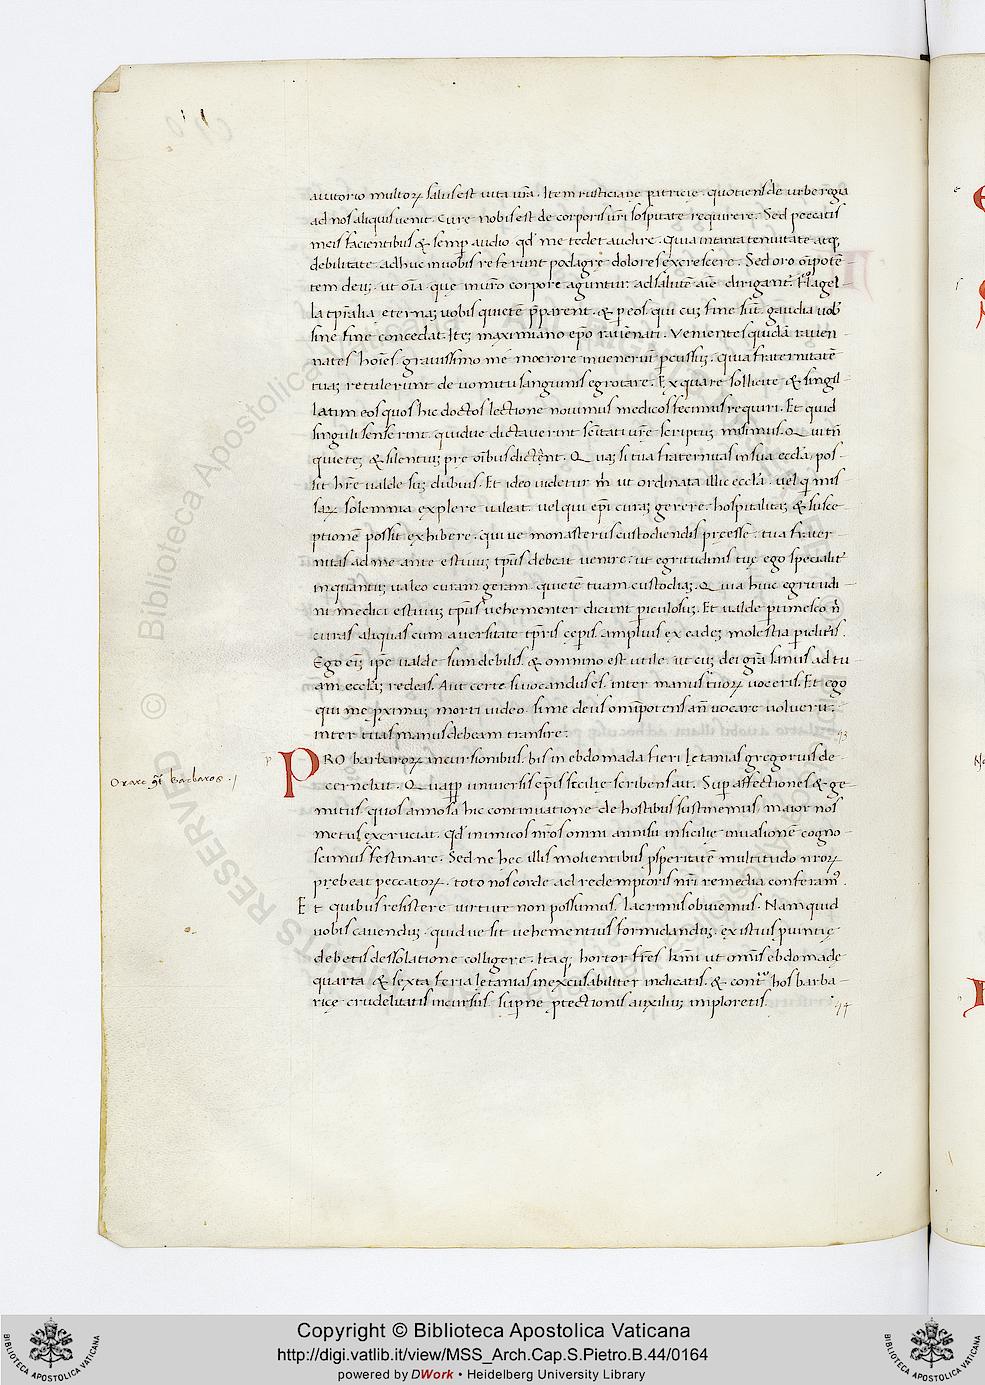 aiutorio multoꝝ salus est uita ur̃a. Item rusticiane patricie. quotiens de urbe regia
ad nos aliquis uenit. Cure nobis est de corporis ur̃i sospitate requirere. Sed peccatis
meis facientibus & semꝑ audio qđ me tedet audire. Quia in tanta tenuitate atq;
debilitate. adhuc in uobis referunt podagrę dolores excrescere. Sed oro om̅ipotē-
tem deū; ut oīa que in ur̃o corpore aguntur; ad salutē aīe dirigant᷑. Flagel-
la tp̃ralia eternaȝ uobis quietē p̃parent. & ꝑ eos. qui cuȝ fine sūt. gaudia uob̄
sine fine concedat. Iteȝ maximiano ep̄o rauenati. Venientes quidā rauen-
nates hoīes. grauissimo me moerore inuenerūt ꝑcussuȝ. quia fraternitatē
tuaȝ retulerunt de uomitu sanguinis egrotare. Ex qua re sollicite & singil-
latim eos quos hic doctos lectione nouimus medicos fecimus requiri. Et quid
singuli senserint. quidue dictauerint sc̄titati ur̃e scriptuȝ misimus. Qui tn̄
quieteȝ & silentiuȝ pre oībus dictāt. Quaȝ si tua fraternitas in sua eccl̄a. pos-
sit hr̃e ualde suȝ dubius. Et ideo uidetur m̄ ut ordinata illic eccl̄a. uel q̇ mis
saꝝ solemnia explere ualeat. uel qui ep̄i curaȝ gerere. hospitalitaȝ & susce-
ptionē possit exhibere. qui ue monasteriis custodiendis preesse. tua frater-
nitas ad me ante estiuuȝ tp̄us debeat uenire. ut egritudinis tuę ego specialit᷑
in quantuȝ ualeo curam geram. quietē tuam custodiaȝ. Quia huic egritudi-
ni medici estiuuȝ tp̄us uehementer dicunt ꝑiculosuȝ. Et ualde ꝑtimesco n̄
curas aliquas cum auersitate tp̃ris cęꝑis. amplius ex eadeȝ molestia ꝑicliteris.
Ego eī ip̄e ualde sum debilis. & omnino est utile. ut cuȝ dei gr̄a sanus ad tu-
am eccl̄aȝ redeas. Aut certe si uocandus es. inter manus tuoꝝ uoceris. Et ego
qui me ꝓximuȝ morti uideo. si me deus omīpotens an̄ uocare uoluerit;
inter tuas manus debeam transire:
PRO barbaroꝝ incursionibus. bis in ebdomada fieri letanias gregorius de-
cernebat. Quaꝓꝑ uniuersis ep̄is sicilię scribens ait. Suꝑ affectiones & ge-
mitus. quos annosa hic continuatione de hostibus sustinemus. maior nos
metus excruciat. Qđ inimicos nr̃os omni annisu in sicilię inuasionē cogno-
scimus festinare. Sed ne hec illis molientibus ꝓsperitatē multitudo nr̃oꝝ
prebeat peccatoꝝ. toto nos corde ad redemptoris nr̃i remedia conferam᷒.
Et quibus resistere uirtute non possumus. lacrimis obuiemus. Nam quid
uobis cauenduȝ. quid ue sit uehementius formidanduȝ. ex istius ꝓuintię
debetis dessolatione colligere. Itaq; hortor fr̃es km̄i ut omīs ebdomadę
quarta & sexta feria letanias inexcusabiliter indicatis. & contr̃ hos barba-
ricę crudelitatis incursus. suꝑnę ꝓtectionis auxiliuȝ imploretis.
Orare 9̃t barbaros.
Copyright © Biblioteca Apostolica Vaticana
http://digi.vatlib.it/view/MSS_Arch.Cap.S.Pietro.B.44/0164
powered by DWork • Heidelberg University Library